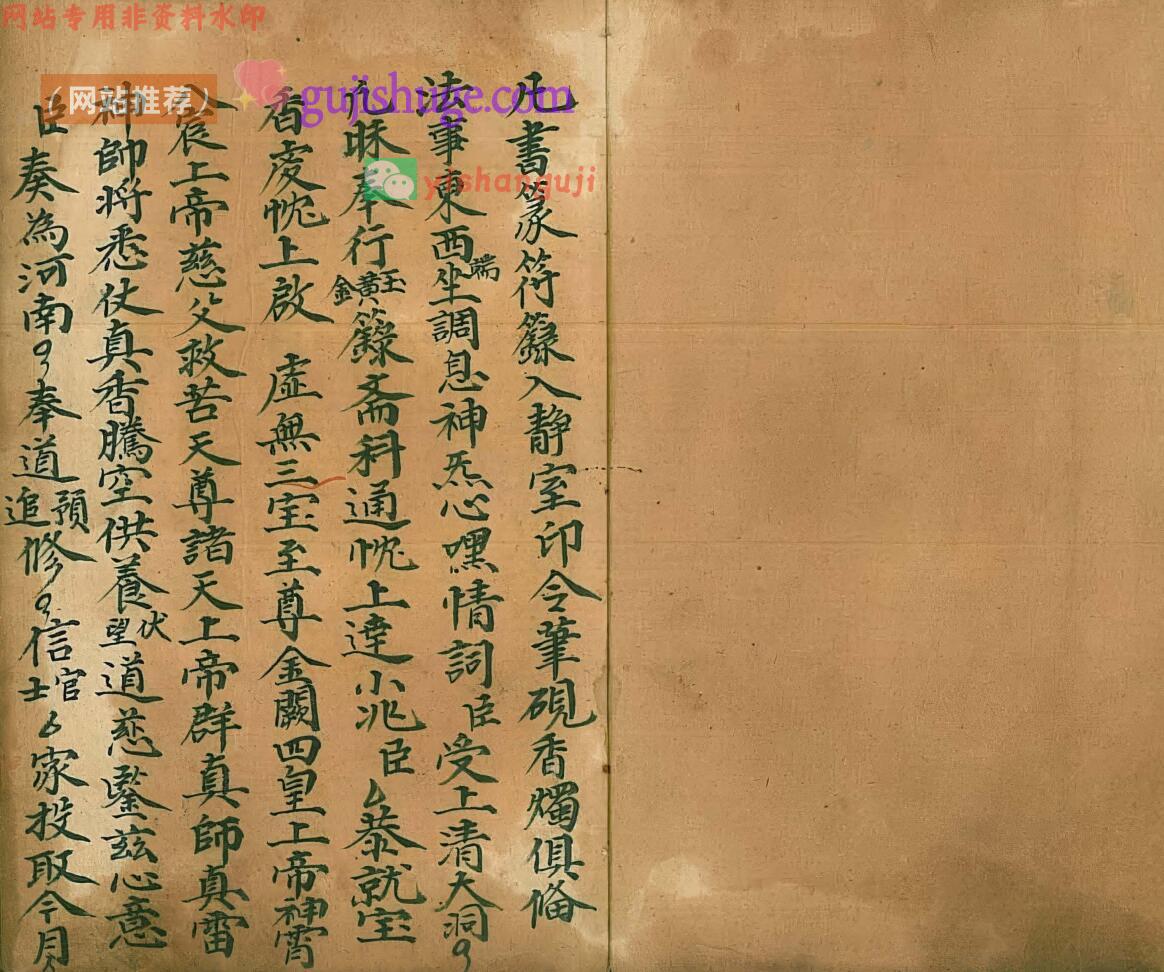 网站专用非资料水印
（网站推荐）
gujishuge.com
yishanguji
凡書篆符籙入靜室印令筆硯香燭俱偹
法事東西端坐調息神炁心嘿情詞臣受上清大洞
奉行金黃玉籙斋科通忱上達小兆臣厶恭就宝
香虔忱上啟　虛無三宝至尊金闕四皇上帝神霄
宸上帝慈父救苦天尊諸天上帝群真師真雷
神師将悉仗真香騰空供養伏望道慈鑒兹心意
臣奏為河南奉道預追修信官士厶家投取今月